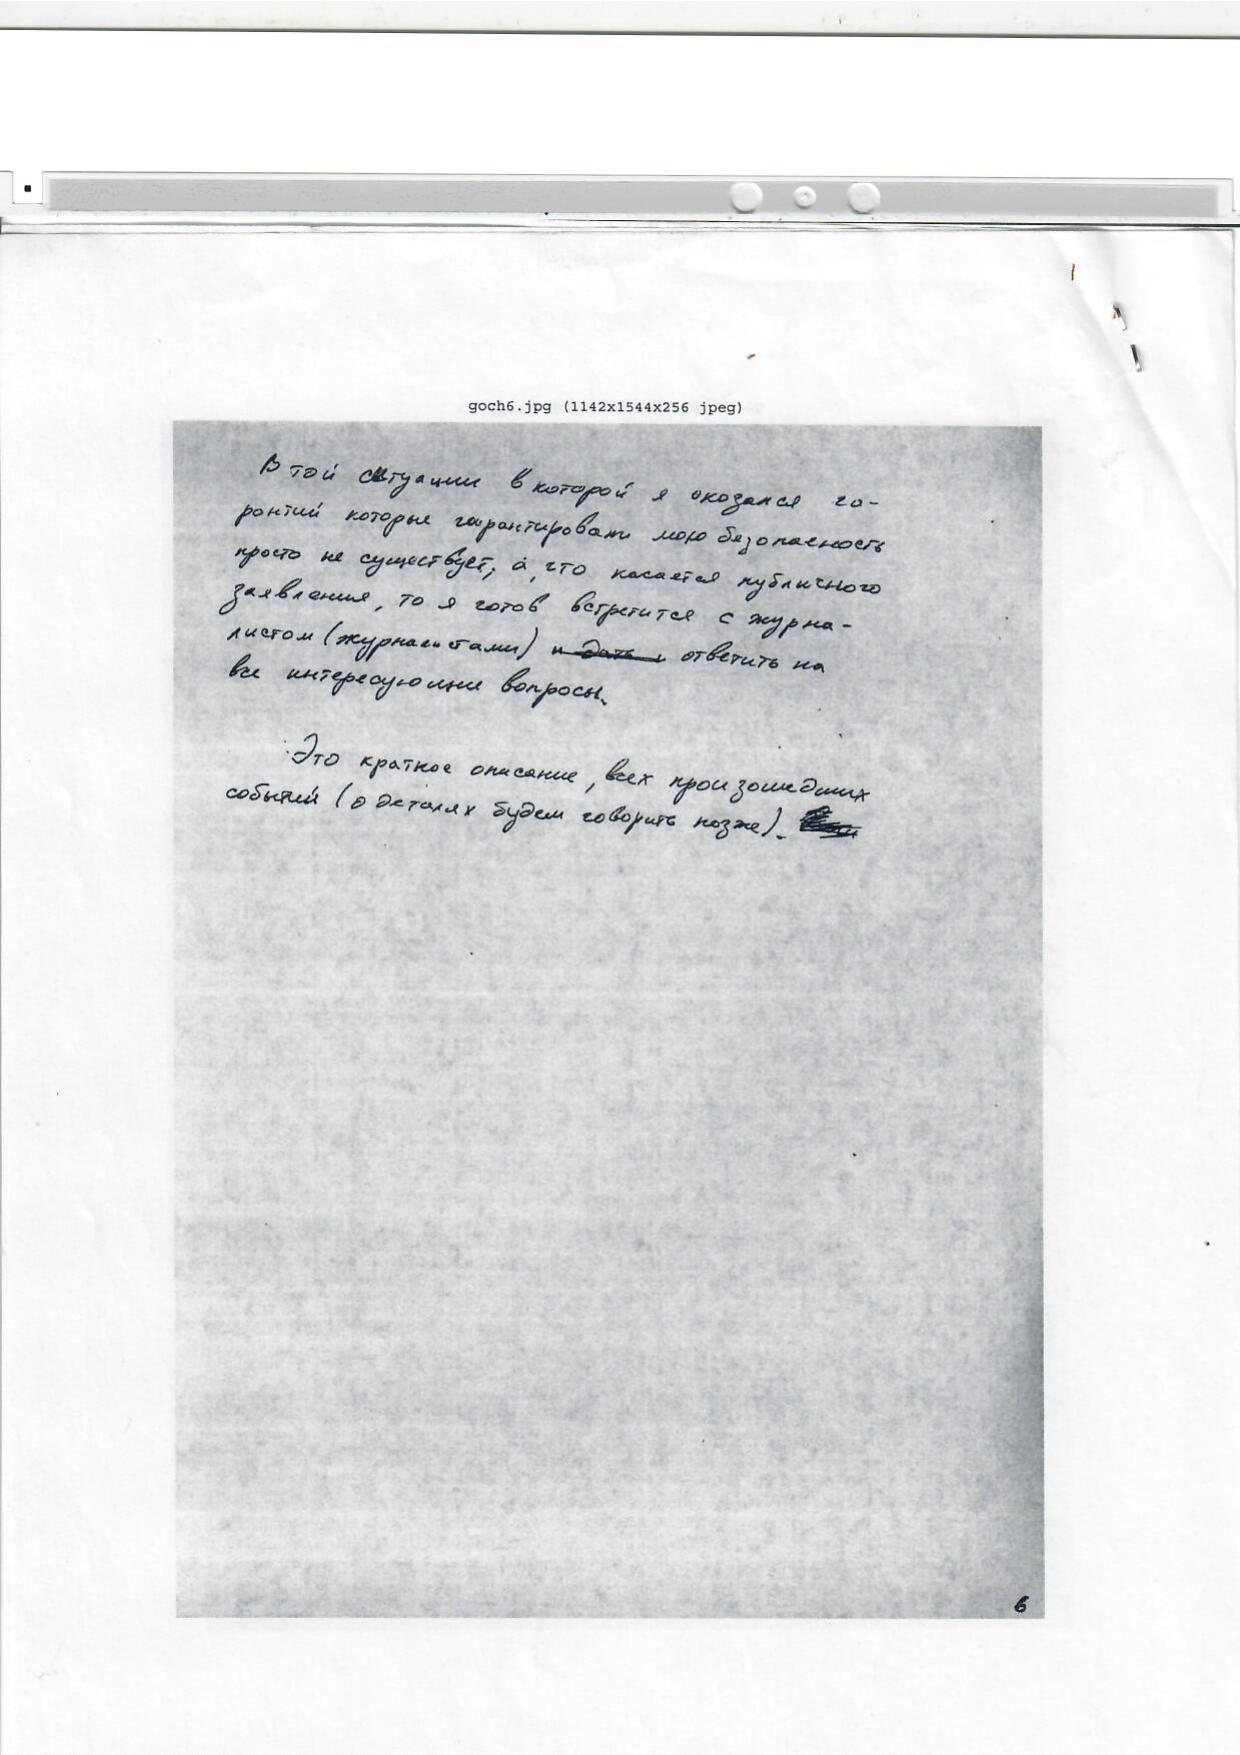 goch6.jpg (1142x1544x256 jpeg)
В той ситуации в которой я оказался га-
рантий которые гарантировали мою безопасность
просто не существует, а, что касается публичного
заявления, то я готов встретится с журна-
листом (журналистами) и дать и ответить на
все интересующие вопросы.
Это краткое описание, всех произошедших
событий (о деталях будем говорить позже).
6